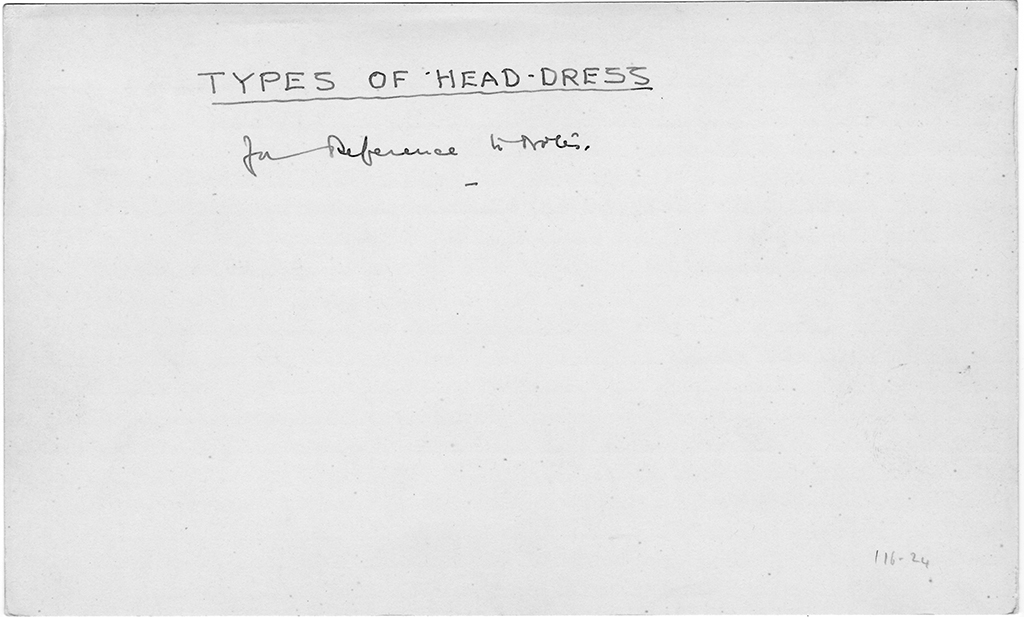 TYPES OF HEAD-DRESS
For Reference to Notes.
116-24